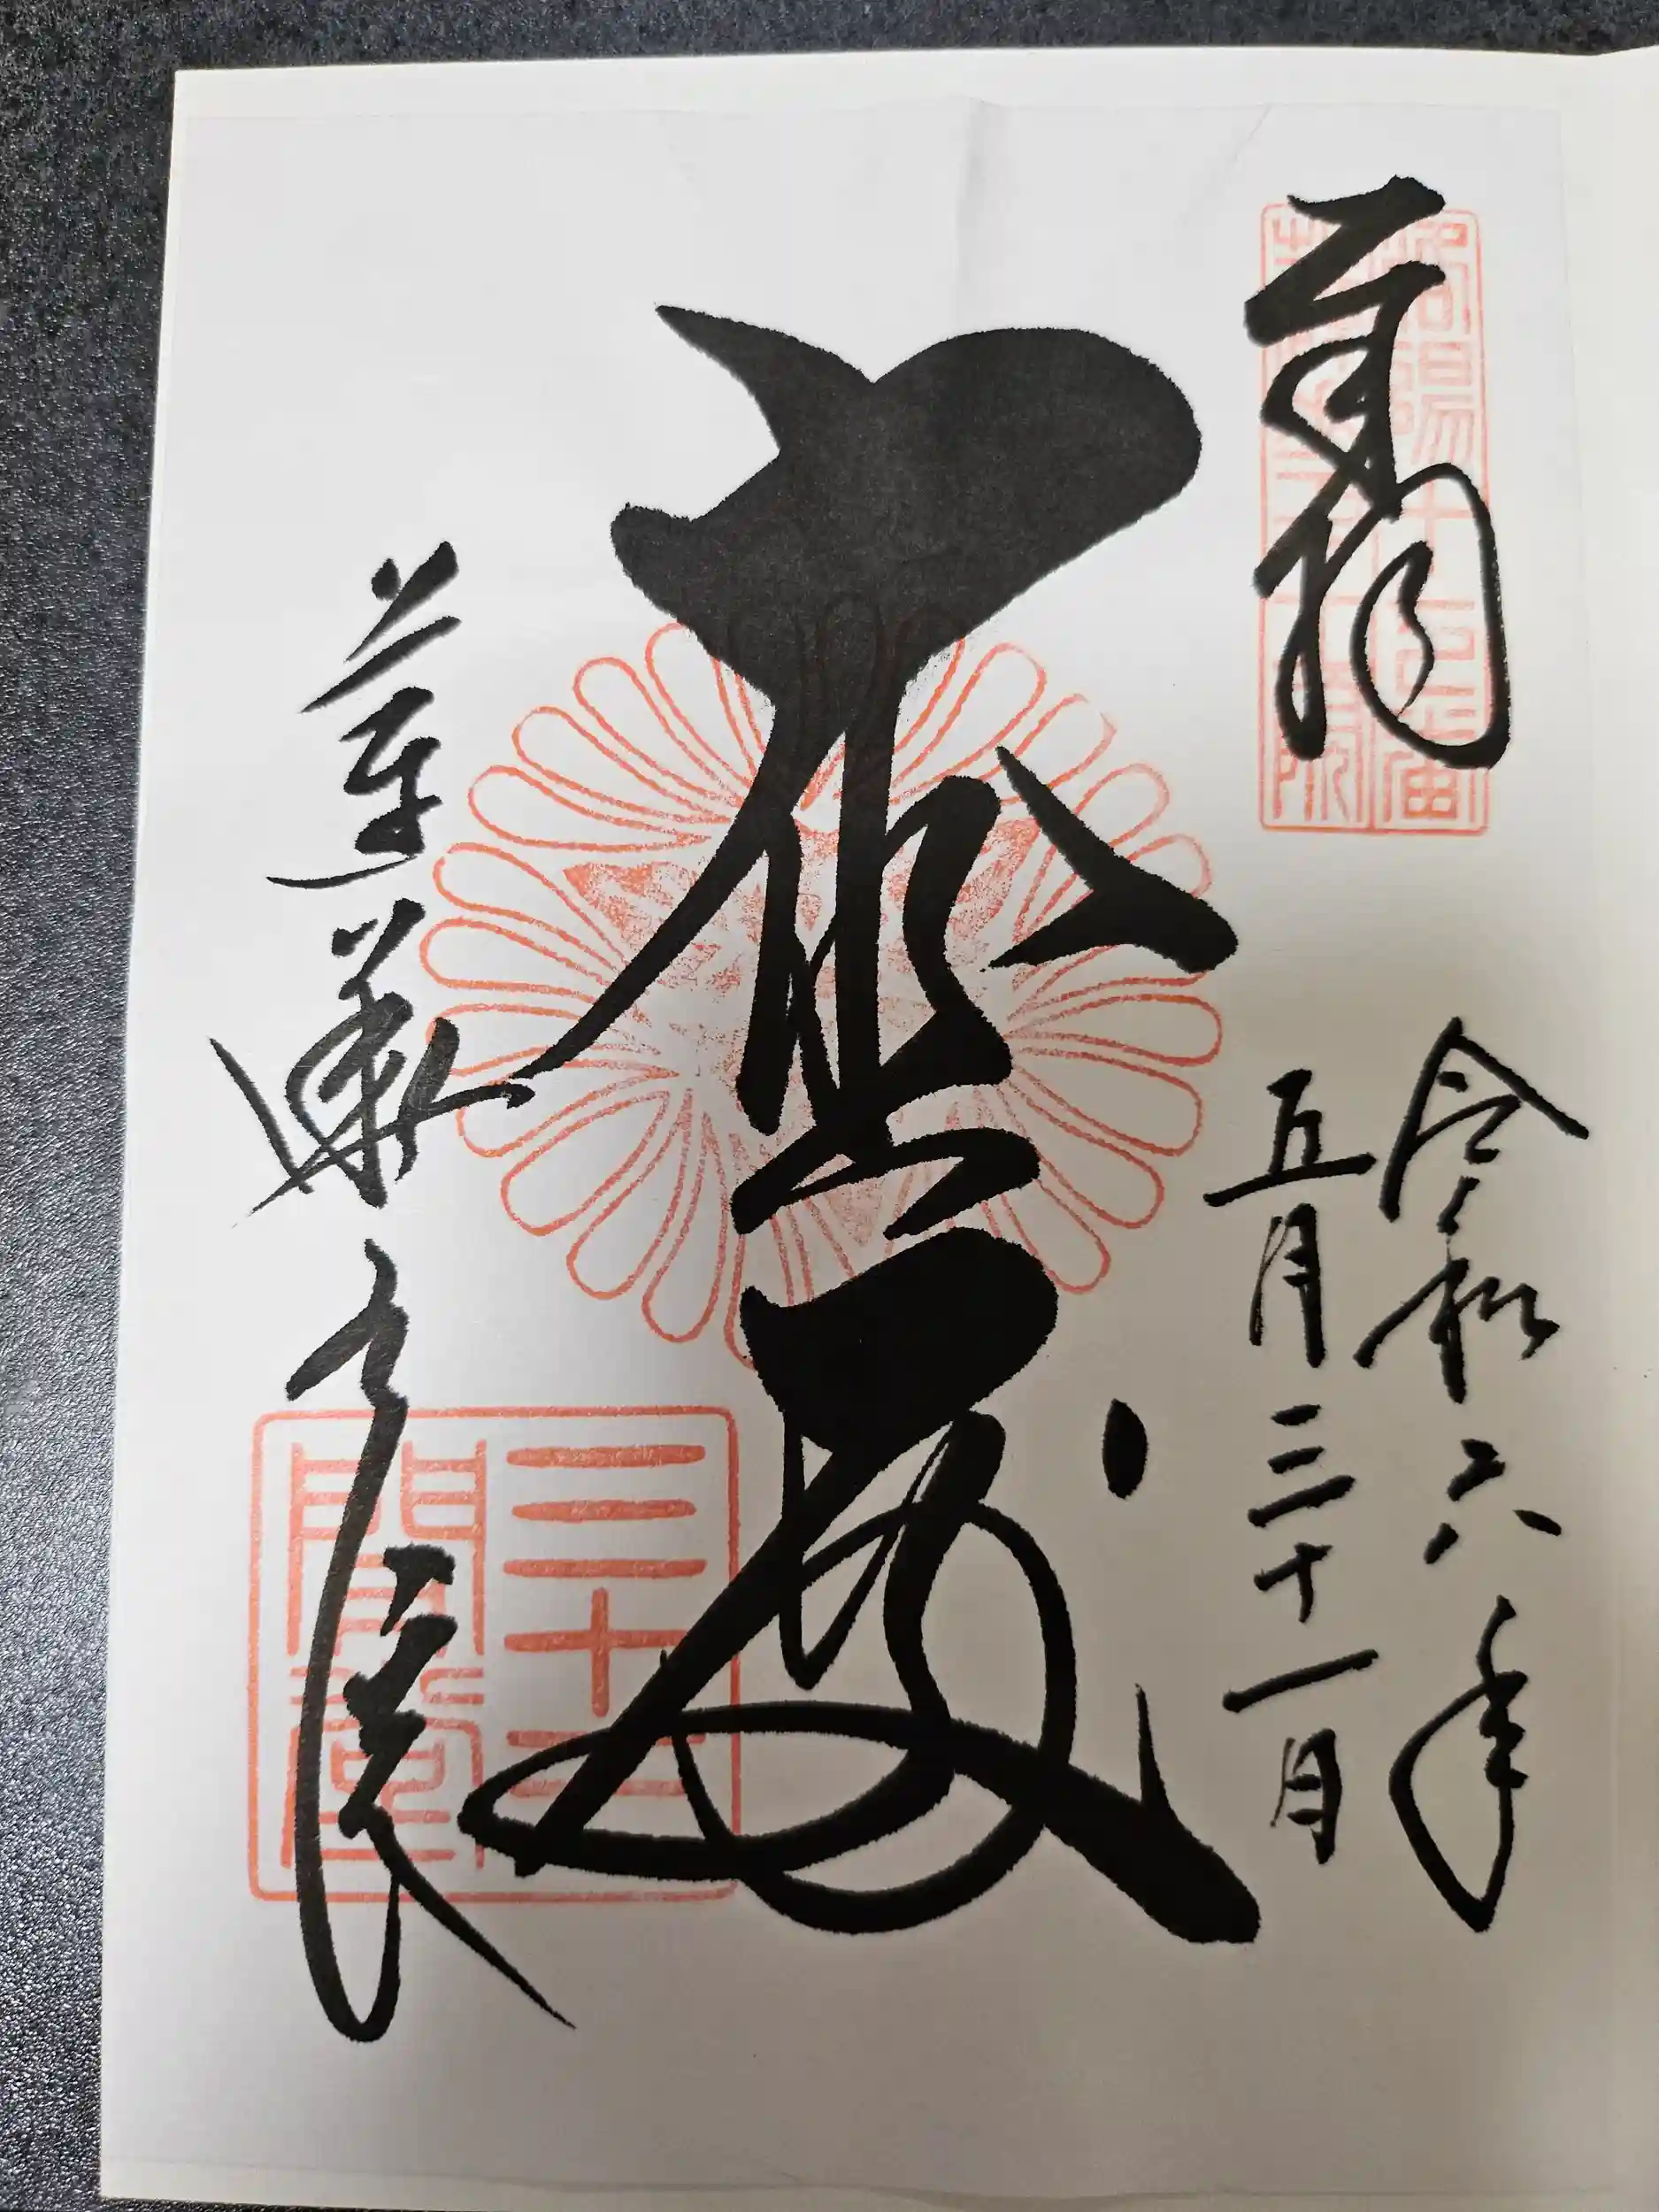 奉拝
洛陽十七番
令和六年
五月三十一日
大悲殿
蓮華王院
三十三
間堂